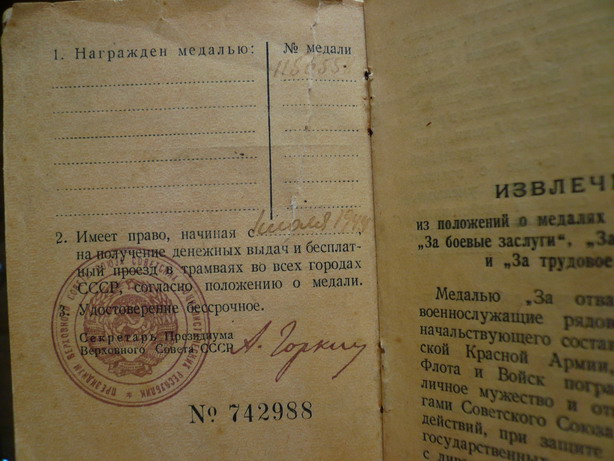 1. Награжден медалью:
№ медали
2. Имеет право, начиная с июля 1944
на получение денежных выдач и бесплат-
ный проезд в трамваях во всех городах
СССР, согласно положению о медали.
3. Удостоверение бессрочное.
Секретарь Президиума
Верховного Совета СССР
А. Горкин
№ 742988
ИЗВЛЕЧЕ
из положений о медалях
„За боевые заслуги“, „За
и „За трудовое
Медалью „За отва
военнослужащие рядов
начальствующего соста
ской Красной Армии,
Флота и Войск погра
личное мужество и от
гами Советского Союза
действий, при защите
государственных